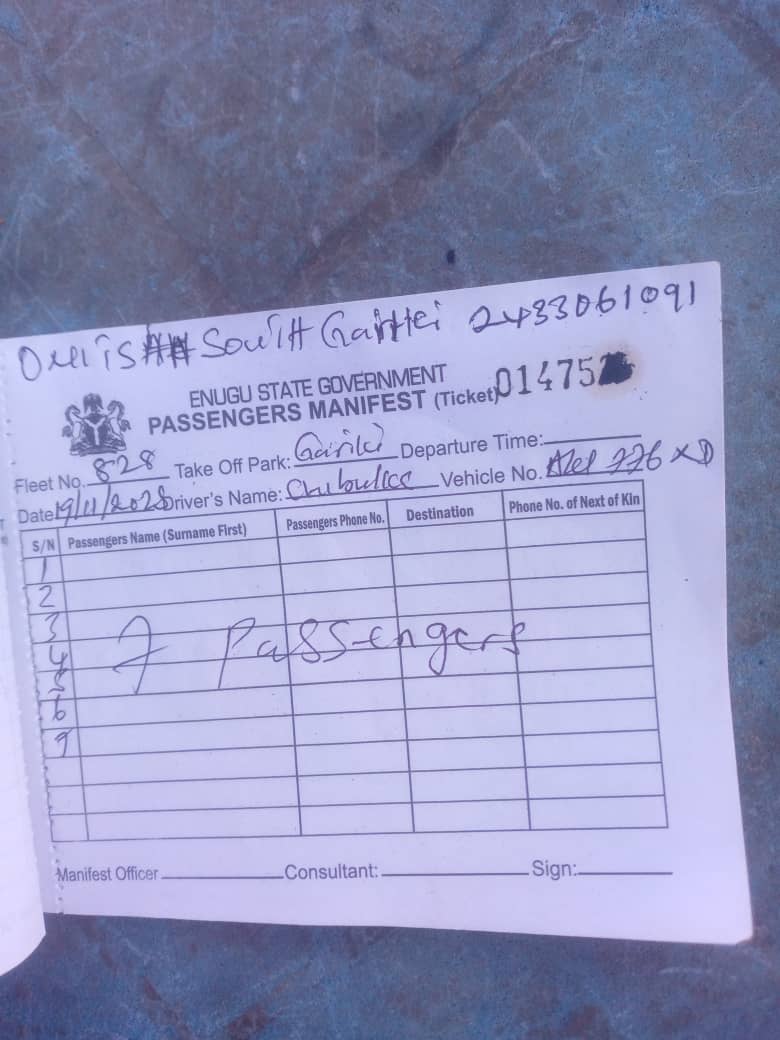 South 2433061091
ENUGU STATE GOVERNMENT
PASSENGERS MANIFEST (Ticket) 01475
Fleet No. 828 Take Off Park: Gariki Departure Time:
Date 19/11/2025 Driver's Name: Vehicle No. 776 XD
S/N Passengers Name (Surname First) Passengers Phone No. Destination Phone No. of Next of Kin
1
2
3
4
5
6
7 Passengers
Manifest Officer Consultant: Sign: